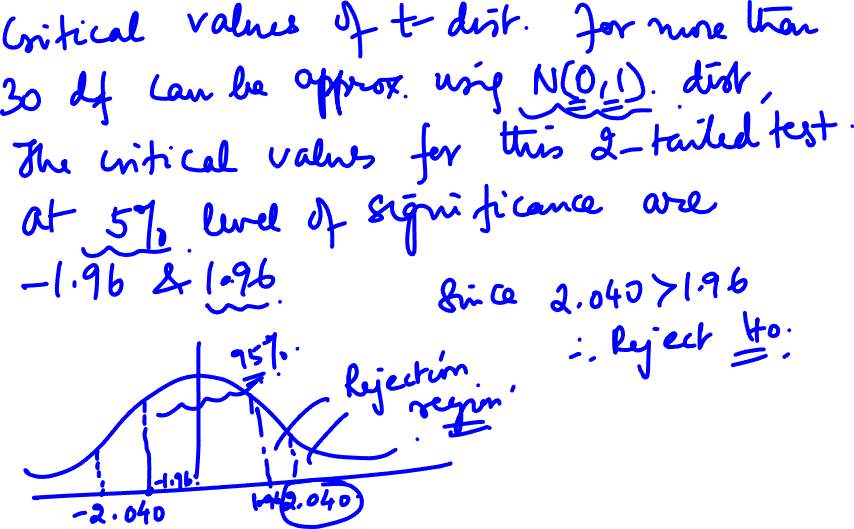 Critical values of t-dist. for more than
30 df can be approx. using N(0,1). dist,
The critical values for this 2-tailed test.
at 5% level of significance are
-1.96 & 1.96.
Since 2.040 > 1.96
∴ Reject H0.
95%.
Rejection
region.
-1.96
1.96
2.040
-2.040